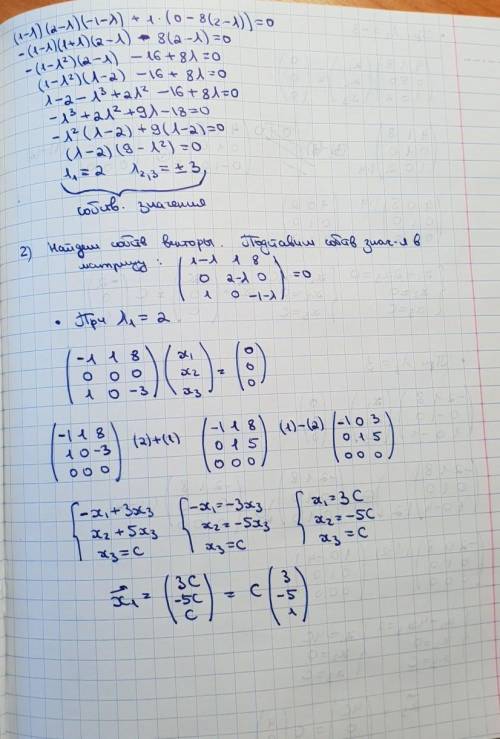 (1-λ)(2-λ)(-1-λ) + 1·(0-8(2-λ))=0
-(1-λ)(1+λ)(2-λ) - 8(2-λ)=0
-(1-λ²)(2-λ) -16+8λ=0
(1-λ²)(λ-2) -16+8λ=0
λ-2-λ³+2λ² -16+8λ=0
-λ³+2λ²+9λ-18=0
-λ²(λ-2)+9(λ-2)=0
(λ-2)(9-λ²)=0
λ₁=2 λ₂,₃=±3
собств. значения
2) Найдем собств векторы. Подставим собств знач-я в
матрицу: (1-λ 1 8
0 2-λ 0
1 0 -1-λ) =0
• При λ₁=2
(-1 1 8
0 0 0
1 0 -3) (x₁
x₂
x₃) = (0
0
0)
(-1 1 8
1 0 -3
0 0 0) (2)+(1) (-1 1 8
0 1 5
0 0 0) (1)-(2) (-1 0 3
0 1 5
0 0 0)
{-x₁+3x₃
x₂+5x₃
x₃=C {-x₁=-3x₃
x₂=-5x₃
x₃=C {x₁=3C
x₂=-5C
x₃=C
x⃗₁= (3C
-5C
C) = C (3
-5
1)